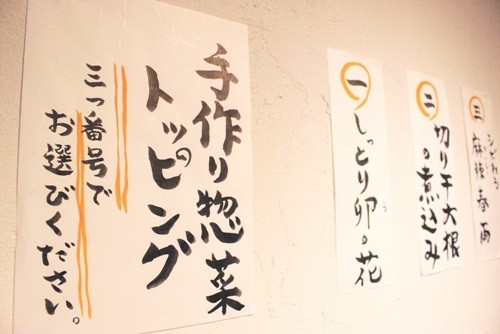 手作り惣菜
トッピング
三つ番号で
お選びください。
一 しっとり卯の花
う
二 切り干大根
の煮込み
三
麻婆春雨